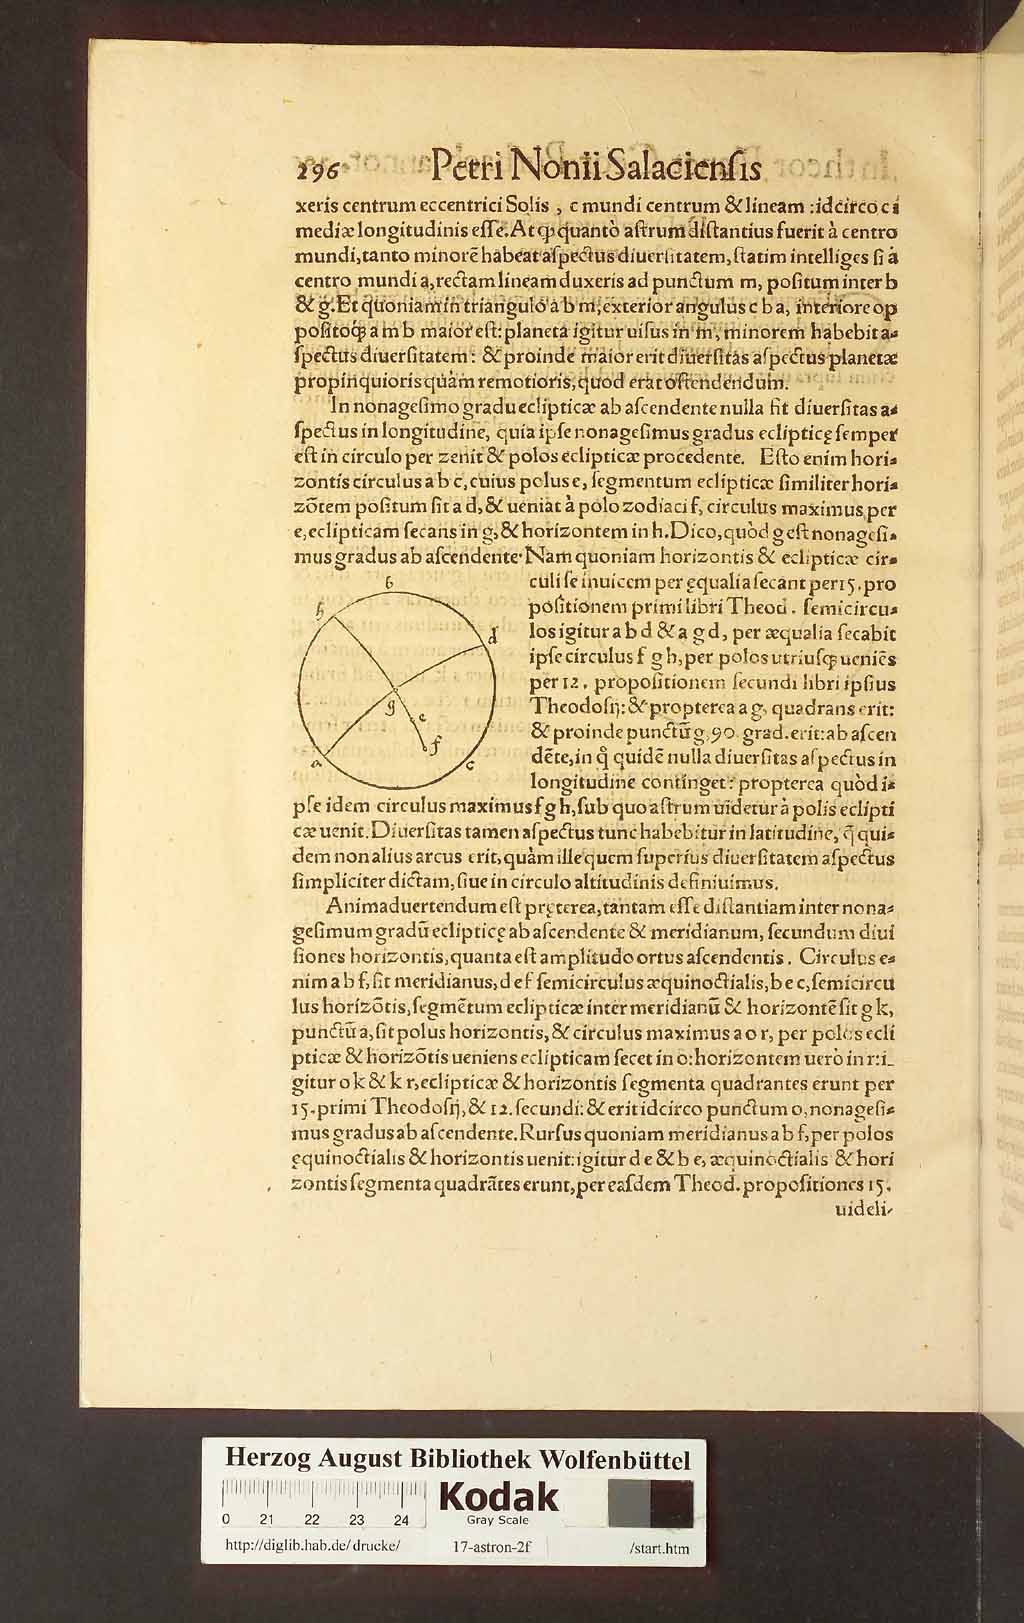 296 Petri Nonii Salaciensis
xeris centrum eccentrici Solis , c mundi centrum & lineam : idcirco c i
mediæ longitudinis esse. At ꝙ quantò astrum distantius fuerit à centro
mundi, tanto minorẽ habeat aspectus diuersitatem, statim intelliges si à
centro mundi a, rectam lineam duxeris ad punctum m, positum inter b
& g. Et quoniam in triangulo a b m, exterior angulus c b a, interiore op
positoq́; a m b maior est: planeta igitur uisus in m, minorem habebit a-
spectus diuersitatem : & proinde maior erit diuersitas aspectus planetæ
propinquioris quàm remotioris, quod erat ostendendum.
In nonagesimo gradu eclipticæ ab ascendente nulla fit diuersitas a-
spectus in longitudine, quia ipse nonagesimus gradus eclipticę semper
est in circulo per zenit & polos eclipticæ procedente. Esto enim hori-
zontis circulus a b c, cuius polus e, segmentum eclipticæ similiter hori-
zõtem positum sit a d, & ueniat à polo zodiaci f, circulus maximus per
e, eclipticam secans in g, & horizontem in h. Dico, quòd g est nonagesi-
mus gradus ab ascendente. Nam quoniam horizontis & eclipticæ cir-
culi se inuicem per ęqualia secant per 15. pro
positionem primi libri Theod . semicircu-
los igitur a b d & a g d, per æqualia secabit
ipse circulus f g h, per polos utriusq; ueniẽs
per 12 . propositionem secundi libri ipsius
Theodosij: & propterea a g, quadrans erit:
& proinde punctũ g, 90. grad. erit: ab ascen
dẽte, in q̊ quidẽ nulla diuersitas aspectus in
longitudine continget: propterea quòd i-
b
h
d
g
e
f
a
c
pse idem circulus maximus f g h, sub quo astrum uidetur à polis eclipti
cæ uenit. Diuersitas tamen aspectus tunc habebitur in latitudine, q̃ qui-
dem non alius arcus erit, quàm ille quem superius diuersitatem aspectus
simpliciter dictam, siue in circulo altitudinis definiuimus.
Animaduertendum est pręterea, tantam esse distantiam inter nona-
gesimum gradũ eclipticę ab ascendente & meridianum, secundum diui
siones horizontis, quanta est amplitudo ortus ascendentis . Circulus e-
nim a b f, sit meridianus, d e f semicirculus æquinoctialis, b e c, semicircu
lus horizõtis, segmẽtum eclipticæ inter meridianũ & horizontẽ sit g k,
punctũ a, sit polus horizontis, & circulus maximus a o r, per polos ecli
pticæ & horizõtis ueniens eclipticam secet in o: horizontem uerò in r: i-
gitur o k & k r, eclipticæ & horizontis segmenta quadrantes erunt per
15. primi Theodosij, & 12. secundi: & erit idcirco punctum o, nonagesi-
mus gradus ab ascendente. Rursus quoniam meridianus a b f, per polos
ęquinoctialis & horizontis uenit: igitur d e & b e, æquinoctialis & hori
zontis segmenta quadrãtes erunt, per easdem Theod. propositiones 15.
uideli-
Herzog August Bibliothek Wolfenbüttel
0 21 22 23 24
Kodak
Gray Scale
http://diglib.hab.de/drucke/ 17-astron-2f /start.htm